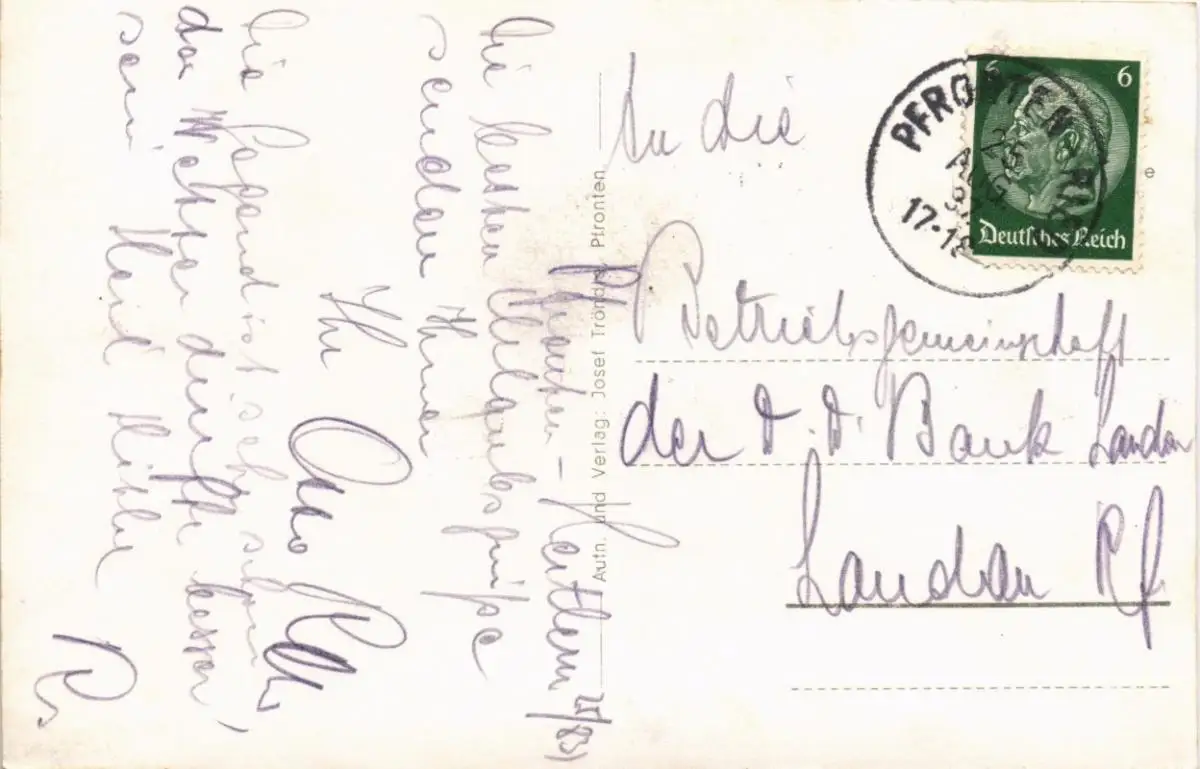 Pfronten-Heitlern
Die besten Urlaubsgrüße
senden Ihnen
Ihr
Otto
Die Gegend ist sehr schön
das Wetter dürfte besser
sein. Heil Hitler
Autn. und Verlag: Josef Tröndle, Pfronten
An die
Betriebsgemeinschaft
der D.D. Bank Landau
Landau Pf
PFRONTEN
25
AUG
17-18
6 6
Deutsches Reich
e